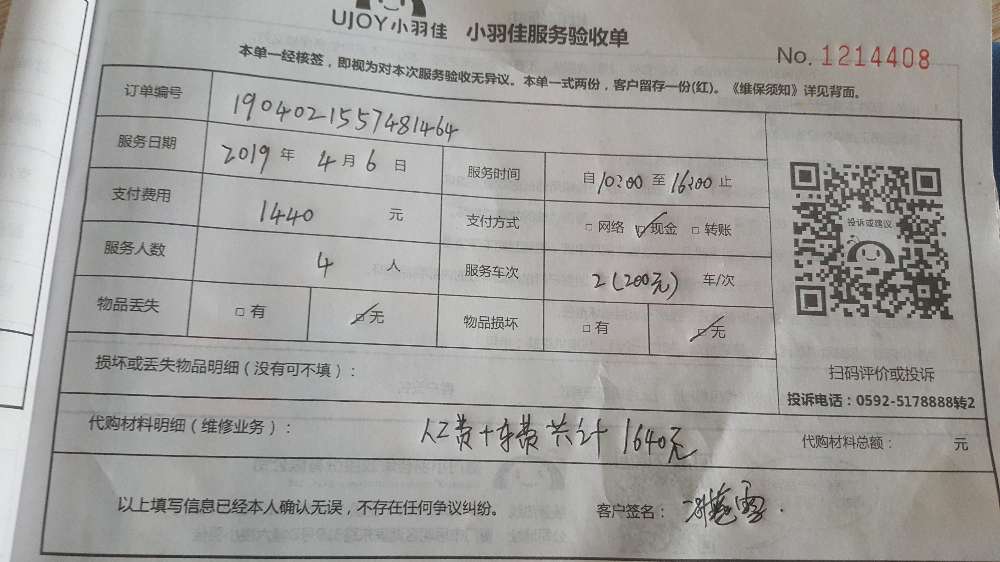 UJOY小羽佳 小羽佳服务验收单
No. 1214408
本单一经核签，即视为对本次服务验收无异议。本单一式两份，客户留存一份(红)。《维保须知》详见背面。
订单编号 1904021557481464
服务日期 2019 年 4 月 6 日 服务时间 自 10:00 至 16:00 止
支付费用 1440 元 支付方式 □ 网络 ☑ 现金 □ 转账
服务人数 4 人 服务车次 2(200元) 车/次
物品丢失 □ 有 ☑ 无 物品损坏 □ 有 ☑ 无
投诉或建议
扫码评价或投诉
投诉电话：0592-5178888转2
损坏或丢失物品明细（没有可不填）：
代购材料明细（维修业务）： 人工费+车费 共计 1640元 代购材料总额： 元
以上填写信息已经本人确认无误，不存在任何争议纠纷。 客户签名：